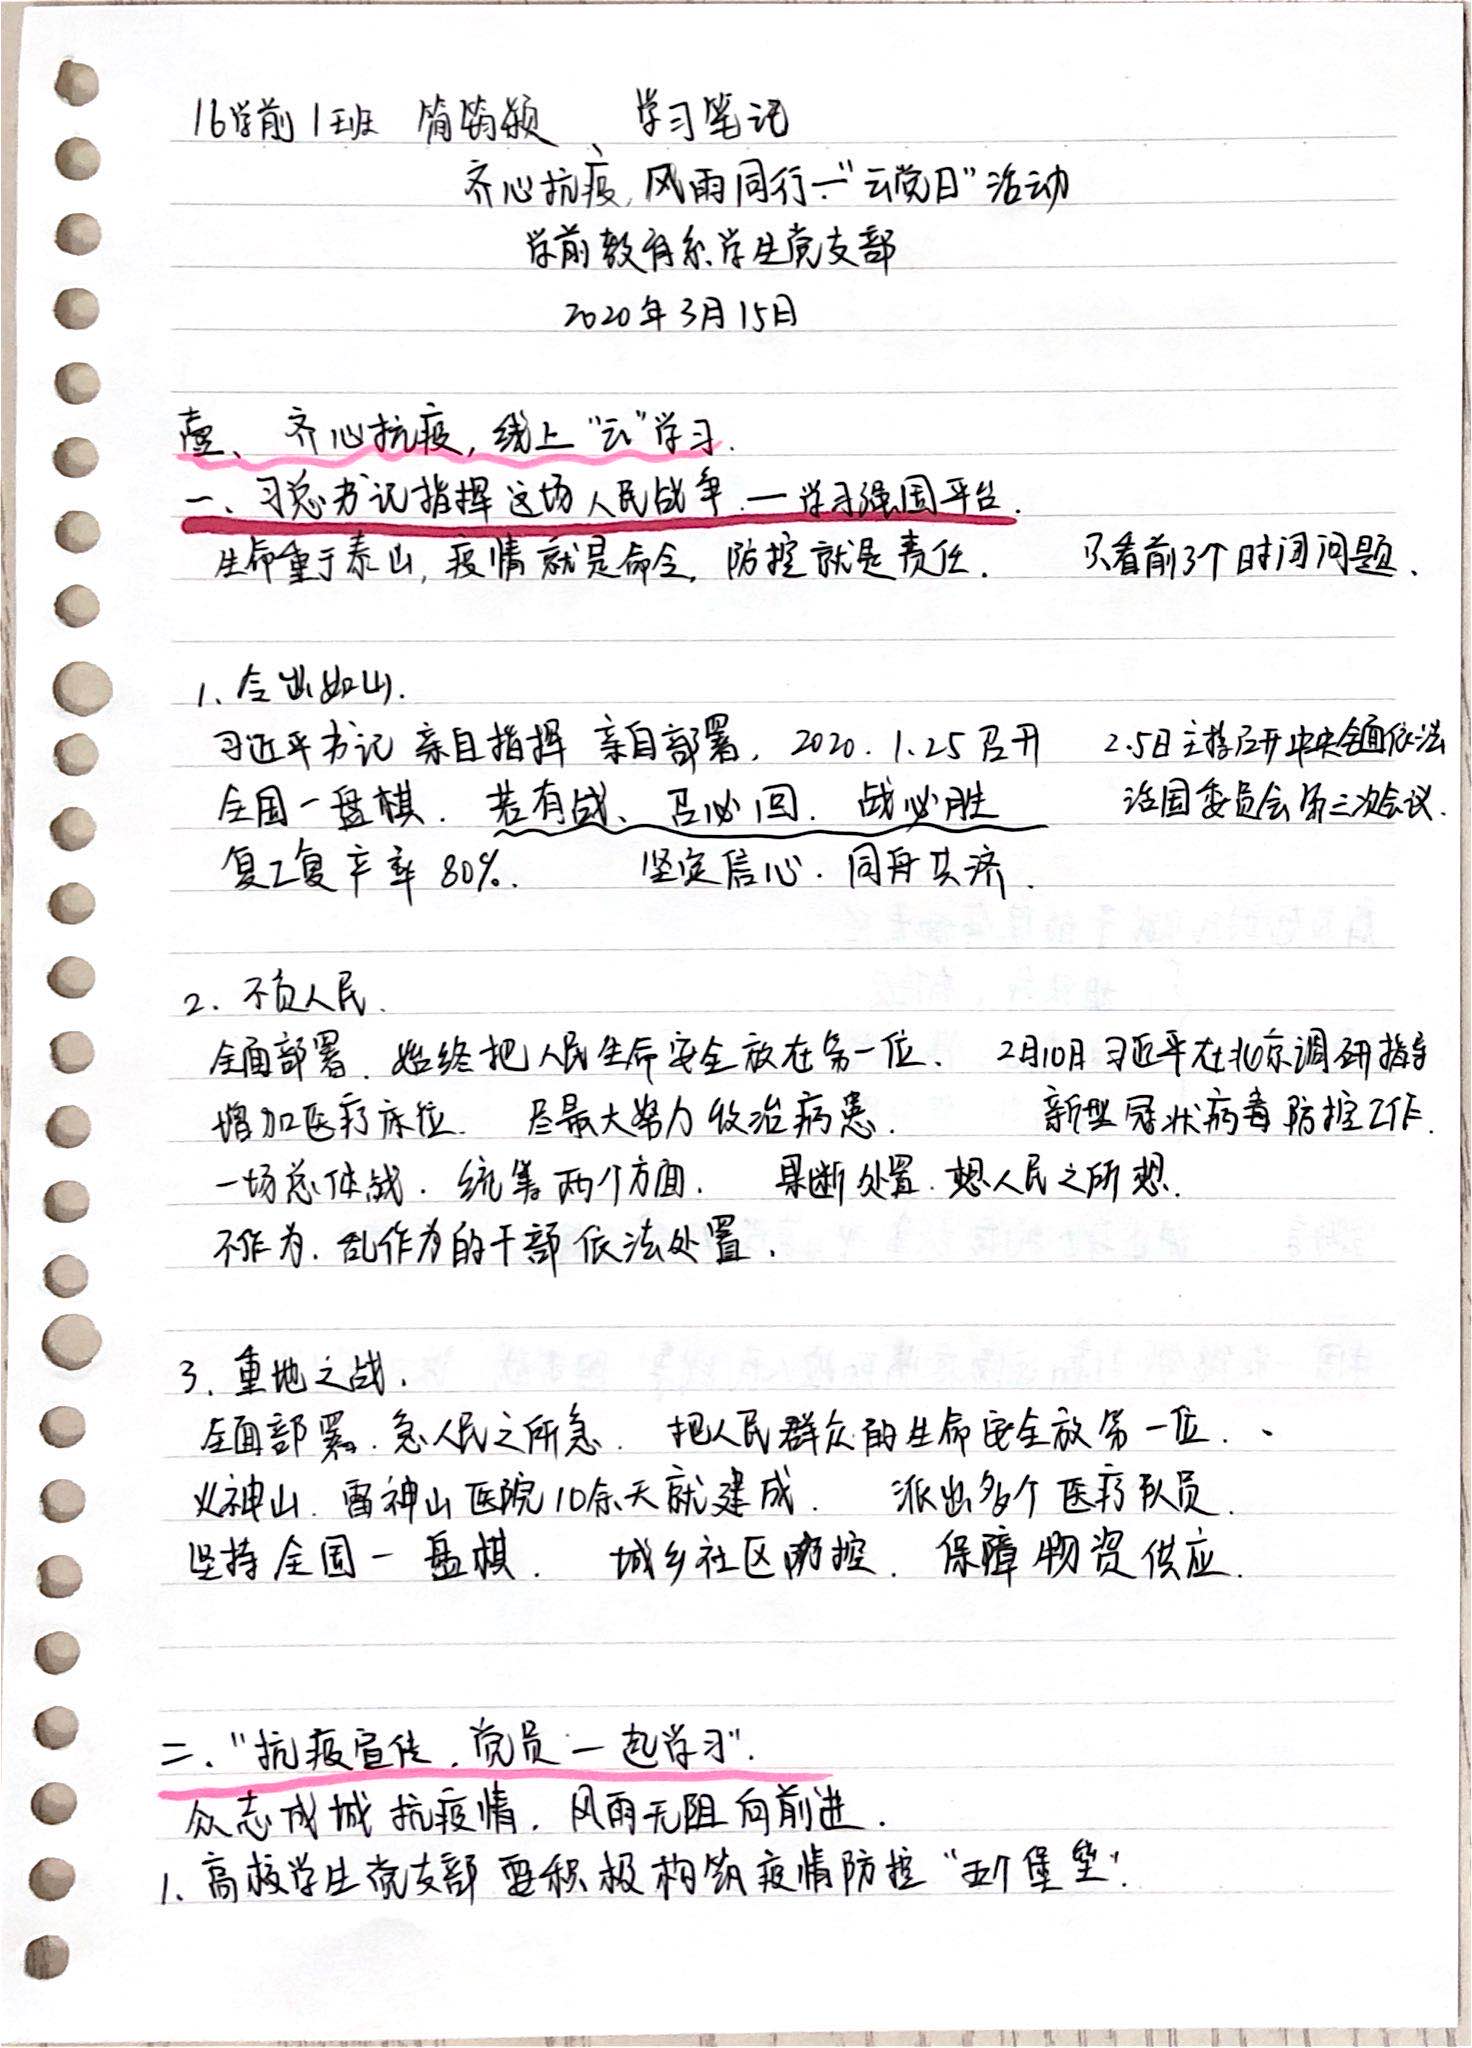 16学前1班 简筠颖、学习笔记
齐心抗疫,风雨同行—"云党日"活动
学前教育系学生党支部
2020年3月15日
壹、齐心抗疫,线上"云"学习.
一、习总书记指挥这场人民战争.—学习强国平台.
生命重于泰山,疫情就是命令,防控就是责任. 只看前3个时间问题、
1、令出如山.
习近平书记 亲自指挥 亲自部署, 2020.1.25召开 2.5日主持召开中央全面依法
全国一盘棋. 若有战、召必回. 战必胜 治国委员会第三次会议.
复工复产率80%. 坚定信心.同舟共济.
2.不负人民.
全面部署.始终把人民生命安全放在第一位、 2月10月习近平在北京调研指导
增加医疗床位. 尽最大努力收治病患. 新型冠状病毒防控工作.
一场总体战.统筹两个方面. 果断处置.想人民之所想.
不作为.乱作为的干部依法处置.
3.重地之战.
全面部署.急人民之所急. 把人民群众的生命安全放第一位.、
火神山.雷神山医院10余天就建成. 派出多个医疗队员.
坚持全国一盘棋. 城乡社区防控. 保障物资供应.
二."抗疫宣传.党员一起学习".
众志成城抗疫情.风雨无阻向前进.
1、高校学生党支部要积极构筑疫情防控"五个堡垒".